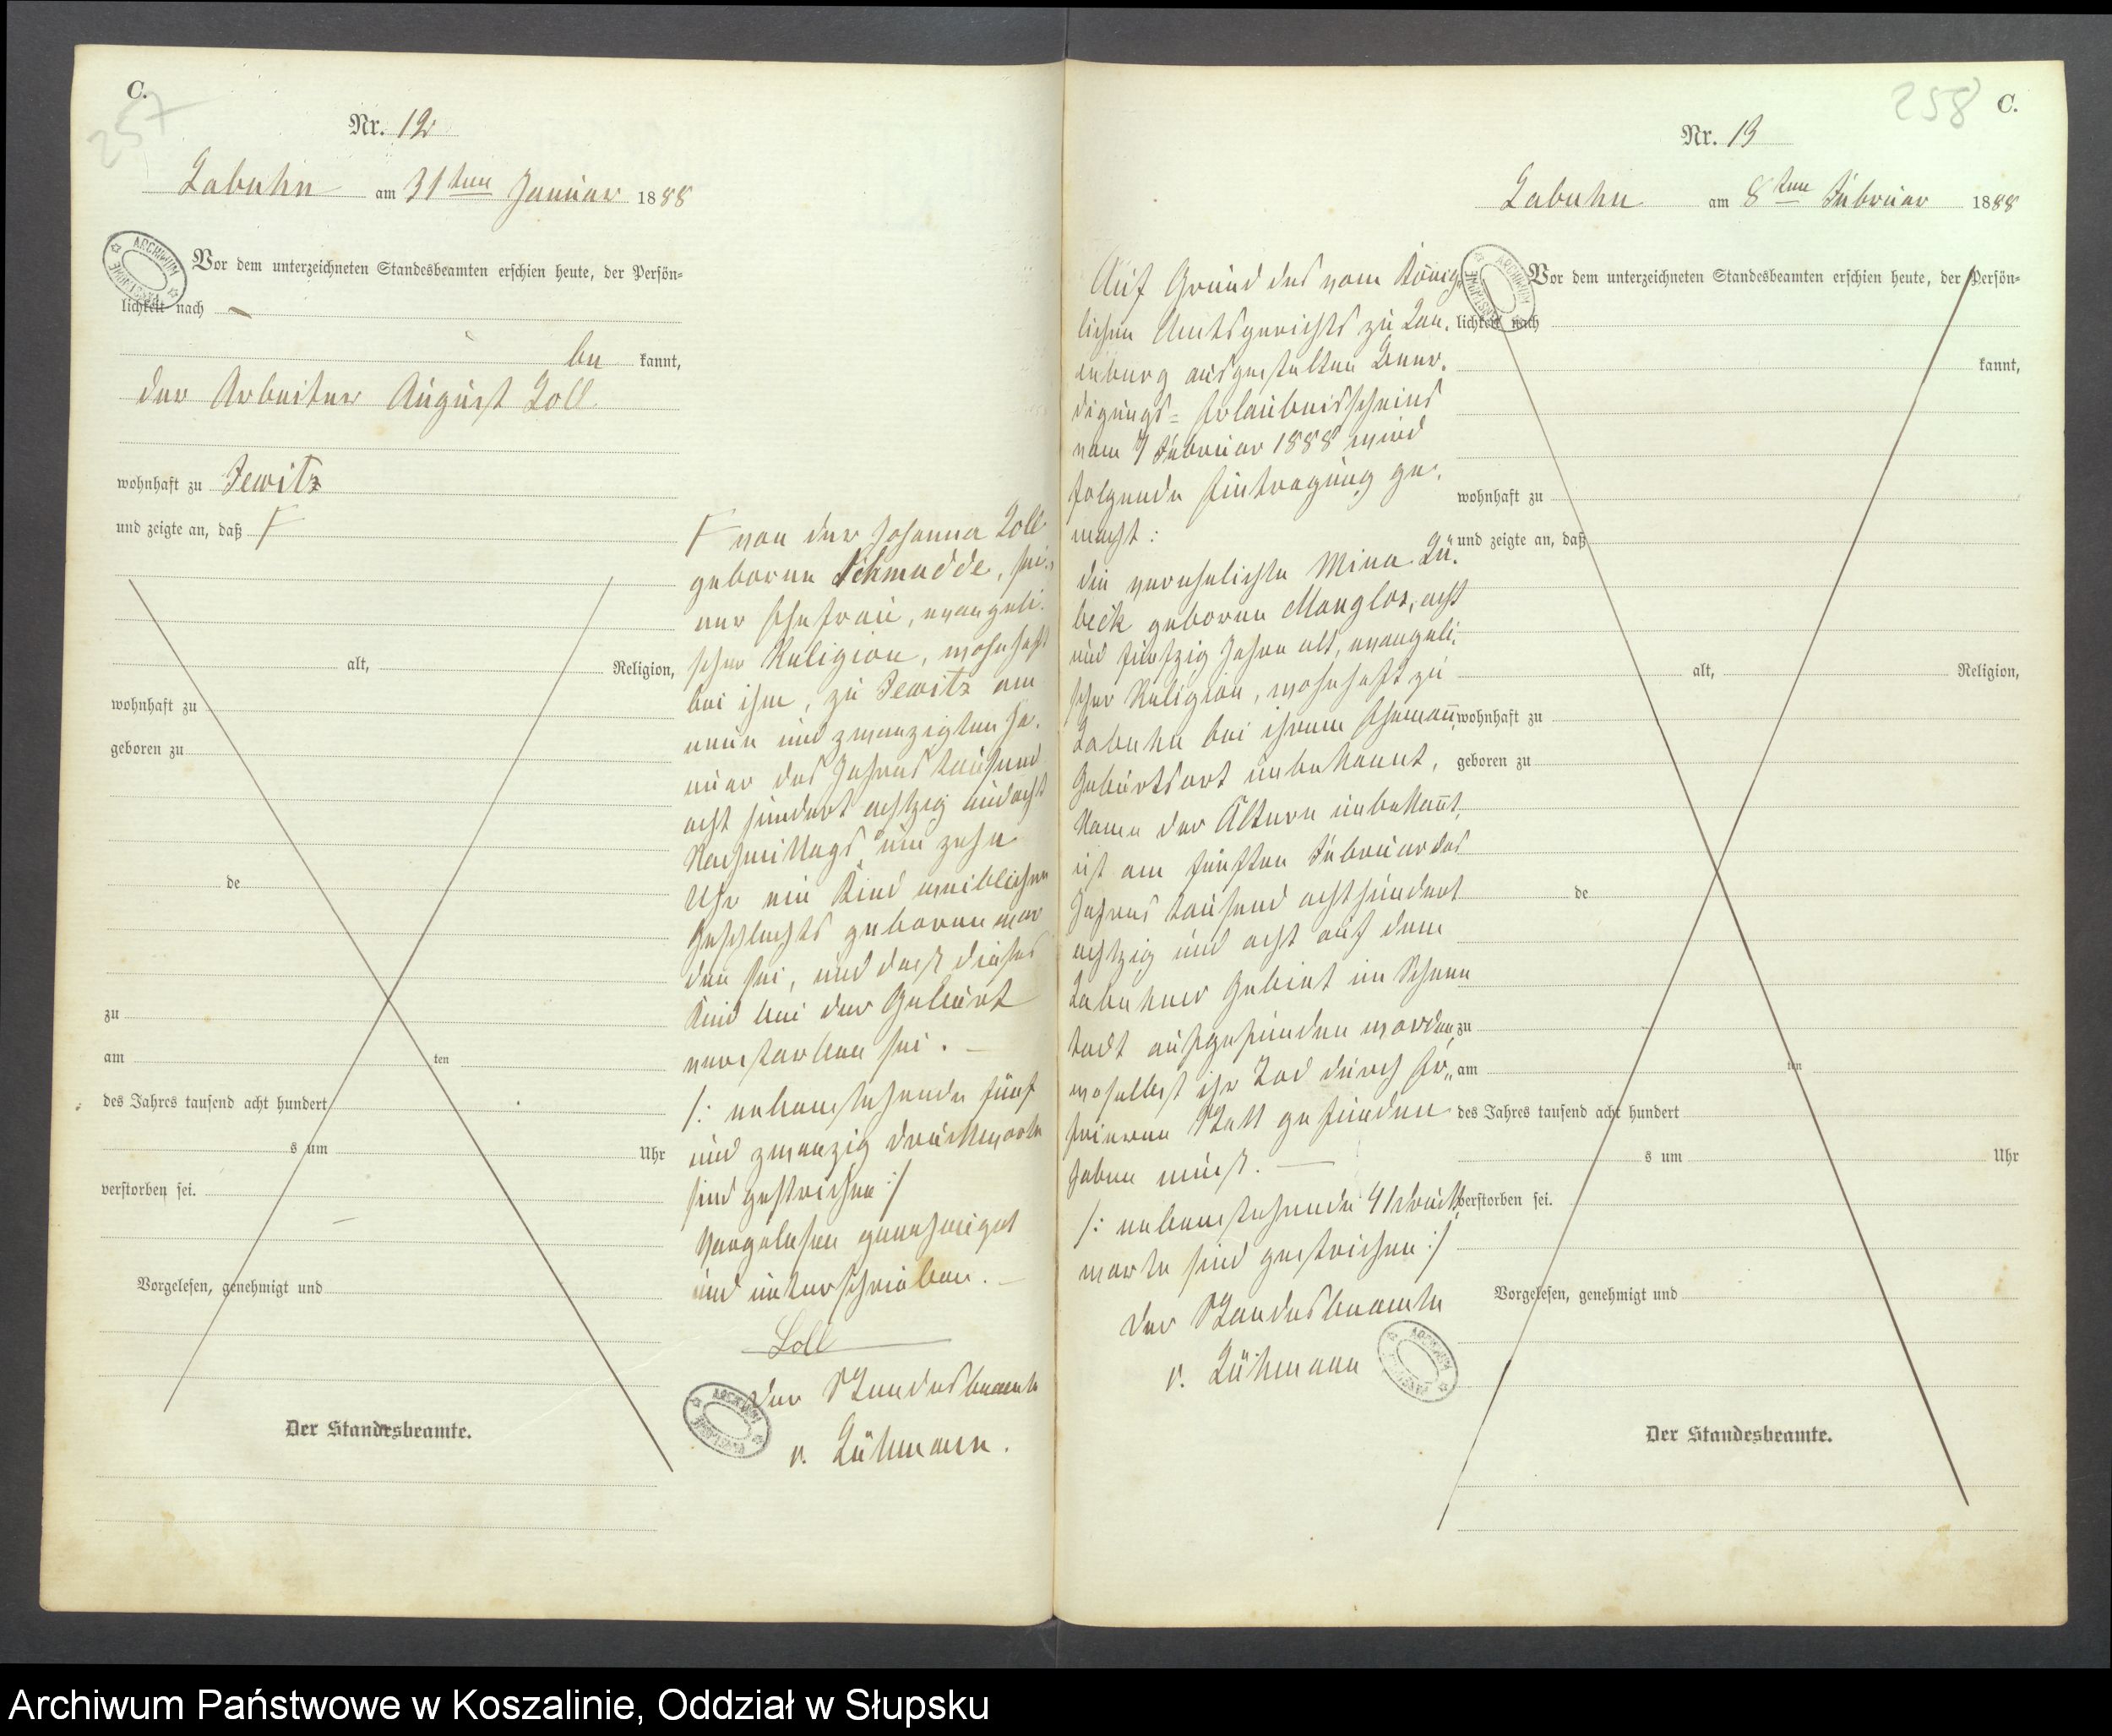 C.
257
Nr. 12
Labuhn am 31ten Januar 1888
Vor dem unterzeichneten Standesbeamten erschien heute, der Persön=
lichkeit nach
be kannt,
der Arbeiter August Loll
wohnhaft zu Jewitz
und zeigte an, daß F
alt, Religion,
wohnhaft zu
geboren zu
de
zu
am ten
des Jahres tausend acht hundert
s um Uhr
verstorben sei.
Vorgelesen, genehmigt und
Der Standesbeamte.
F von der Johanna Loll
geborene Schmudde, sei-
ner Ehefrau, evangeli-
scher Religion, wohnhaft
bei ihm, zu Jewitz am
neun und zwanzigten Ja-
nuar des Jahres tausend
acht hundert achtzig und acht
Nachmittags um zehn
Uhr ein Kind weiblichen
Geschlechts geboren wor
den sei, und dass dieses
Kind bei der Geburt
verstorben sei. –
/: nebenstehende fünf
und zwanzig Druckworte
sind gestrichen :/
Vorgelesen genehmigt
und unterschrieben. –
Loll
Der Standesbeamte
v. Lühmann.
258
C.
Nr. 13
Labuhn am 8ten Februar 1888
Auf Grund des vom König-
lichen Amtsgerichts zu Lau-
enburg ausgestellten Beer-
digungs= Erlaubnisscheins
vom 7 Februar 1888 wird
folgende Eintragung ge-
macht:
die verehelichte Mina Lü-
beck geborene Manglos, acht
und fünfzig Jahre alt, evangeli-
scher Religion, wohnhaft zu
Labuhn bei ihrem Ehemann,
Geburtsort unbekannt,
Name der Ältern unbekannt,
ist am fünften Februar des
Jahres tausend achthundert
achtzig und acht auf dem
Labuhner Gebiet im Schnee
todt aufgefunden worden,
woselbst ihr Tod durch Er-
frieren Statt gefunden
haben muß. –
/: nebenstehende 41 Druck-
worte sind gestrichen :/
Der Standesbeamte
v. Lühmann
Vor dem unterzeichneten Standesbeamten erschien heute, der Persön=
lichkeit nach
kannt,
wohnhaft zu
und zeigte an, daß
alt, Religion,
wohnhaft zu
geboren zu
de
zu
am ten
des Jahres tausend acht hundert
s um Uhr
verstorben sei.
Vorgelesen, genehmigt und
Der Standesbeamte.
Archiwum Państwowe w Koszalinie, Oddział w Słupsku